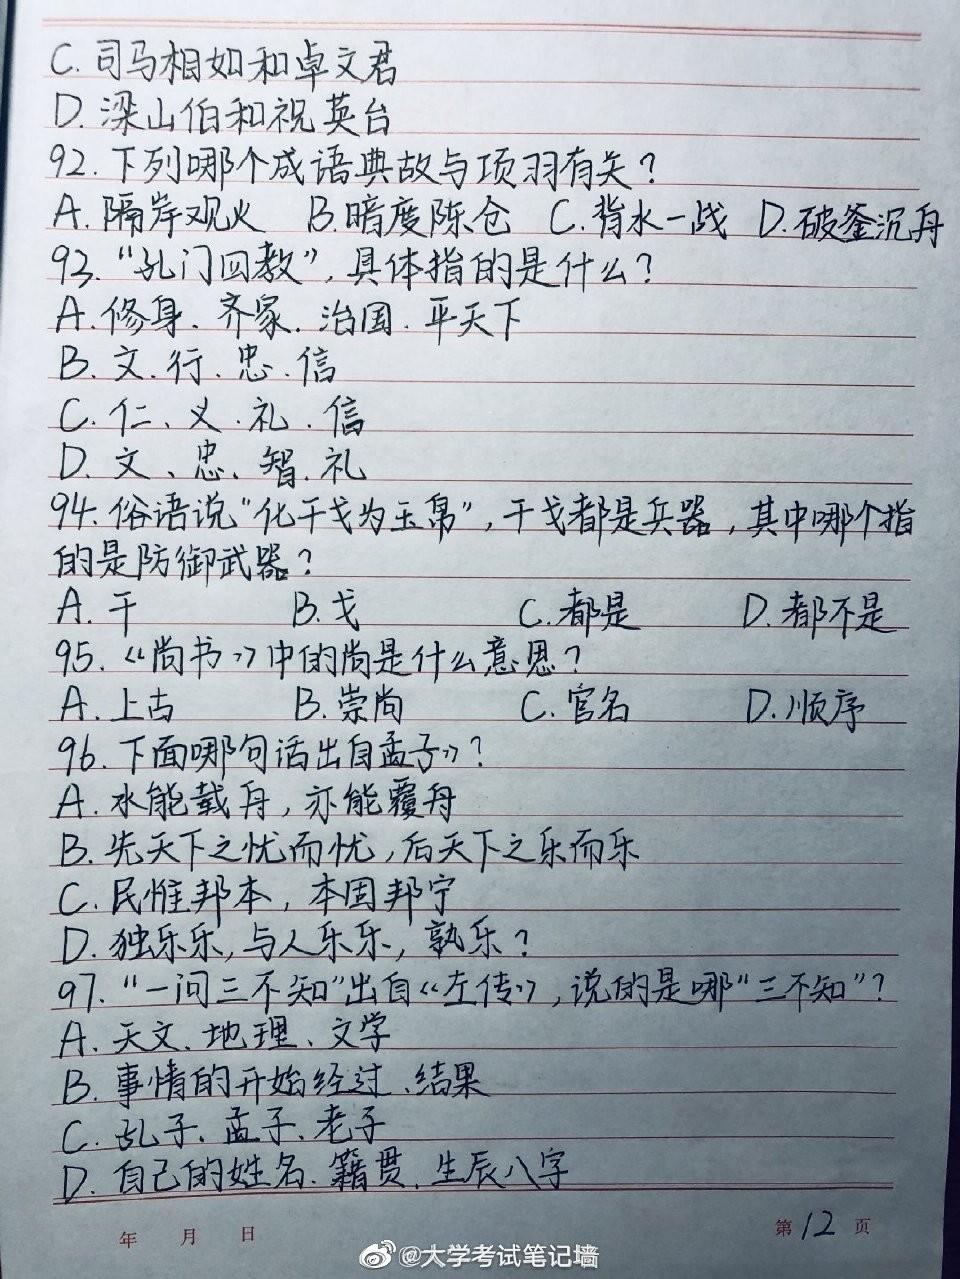 C. 司马相如和卓文君
D. 梁山伯和祝英台
92. 下列哪个成语典故与项羽有关?
A. 隔岸观火 B. 暗度陈仓 C. 背水一战 D. 破釜沉舟
93. “孔门四教”, 具体指的是什么?
A. 修身、齐家、治国、平天下
B. 文、行、忠、信
C. 仁、义、礼、信
D. 文、忠、智、礼
94. 俗语说“化干戈为玉帛”, 干戈都是兵器, 其中哪个指
的是防御武器?
A. 干 B. 戈 C. 都是 D. 都不是
95. 《尚书》中的尚是什么意思?
A. 上古 B. 崇尚 C. 官名 D. 顺序
96. 下面哪句话出自孟子》?
A. 水能载舟, 亦能覆舟
B. 先天下之忧而忧, 后天下之乐而乐
C. 民惟邦本, 本固邦宁
D. 独乐乐, 与人乐乐, 孰乐?
97. “一问三不知”出自《左传》, 说的是哪“三不知”?
A. 天文、地理、文学
B. 事情的开始经过、结果
C. 孔子、孟子、老子
D. 自己的姓名、籍贯、生辰八字
年 月 日 第12页
@大学考试笔记墙